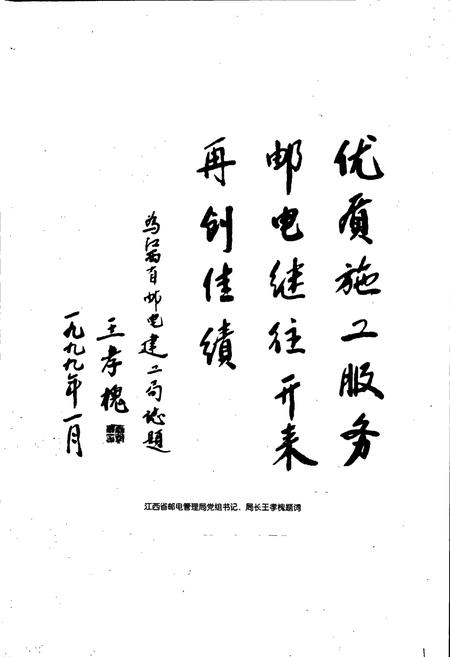 优质施工服务
邮电继往开来
再创佳绩
为江西省邮电建工局志题
王孝槐
一九九九年一月
江西省邮电管理局党组书记、局长王孝槐题词